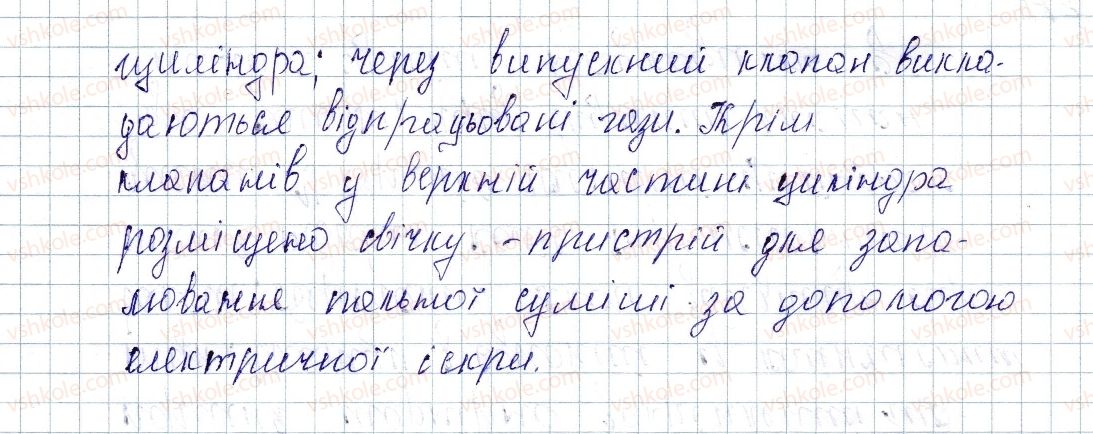 циліндра; через випускний клапан викла-
даються відпрацьовані гази. Крім
клапанів у верхній частині циліндра
розміщено свічку - пристрій для запа-
лювання пальної суміші за допомогою
електричної іскри.